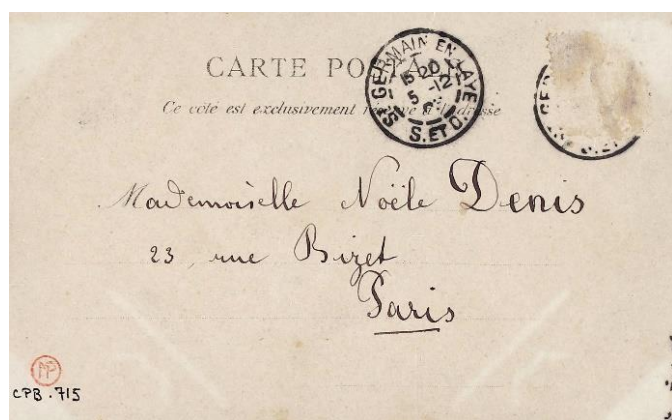 CARTE POSTALE
Ce côté est exclusivement réservé à l'adresse
St GERMAIN EN LAYE
15 20
5 -12
S. ET O.
Mademoiselle Noële Denis
23, rue Bizet
Paris
CPB. 715